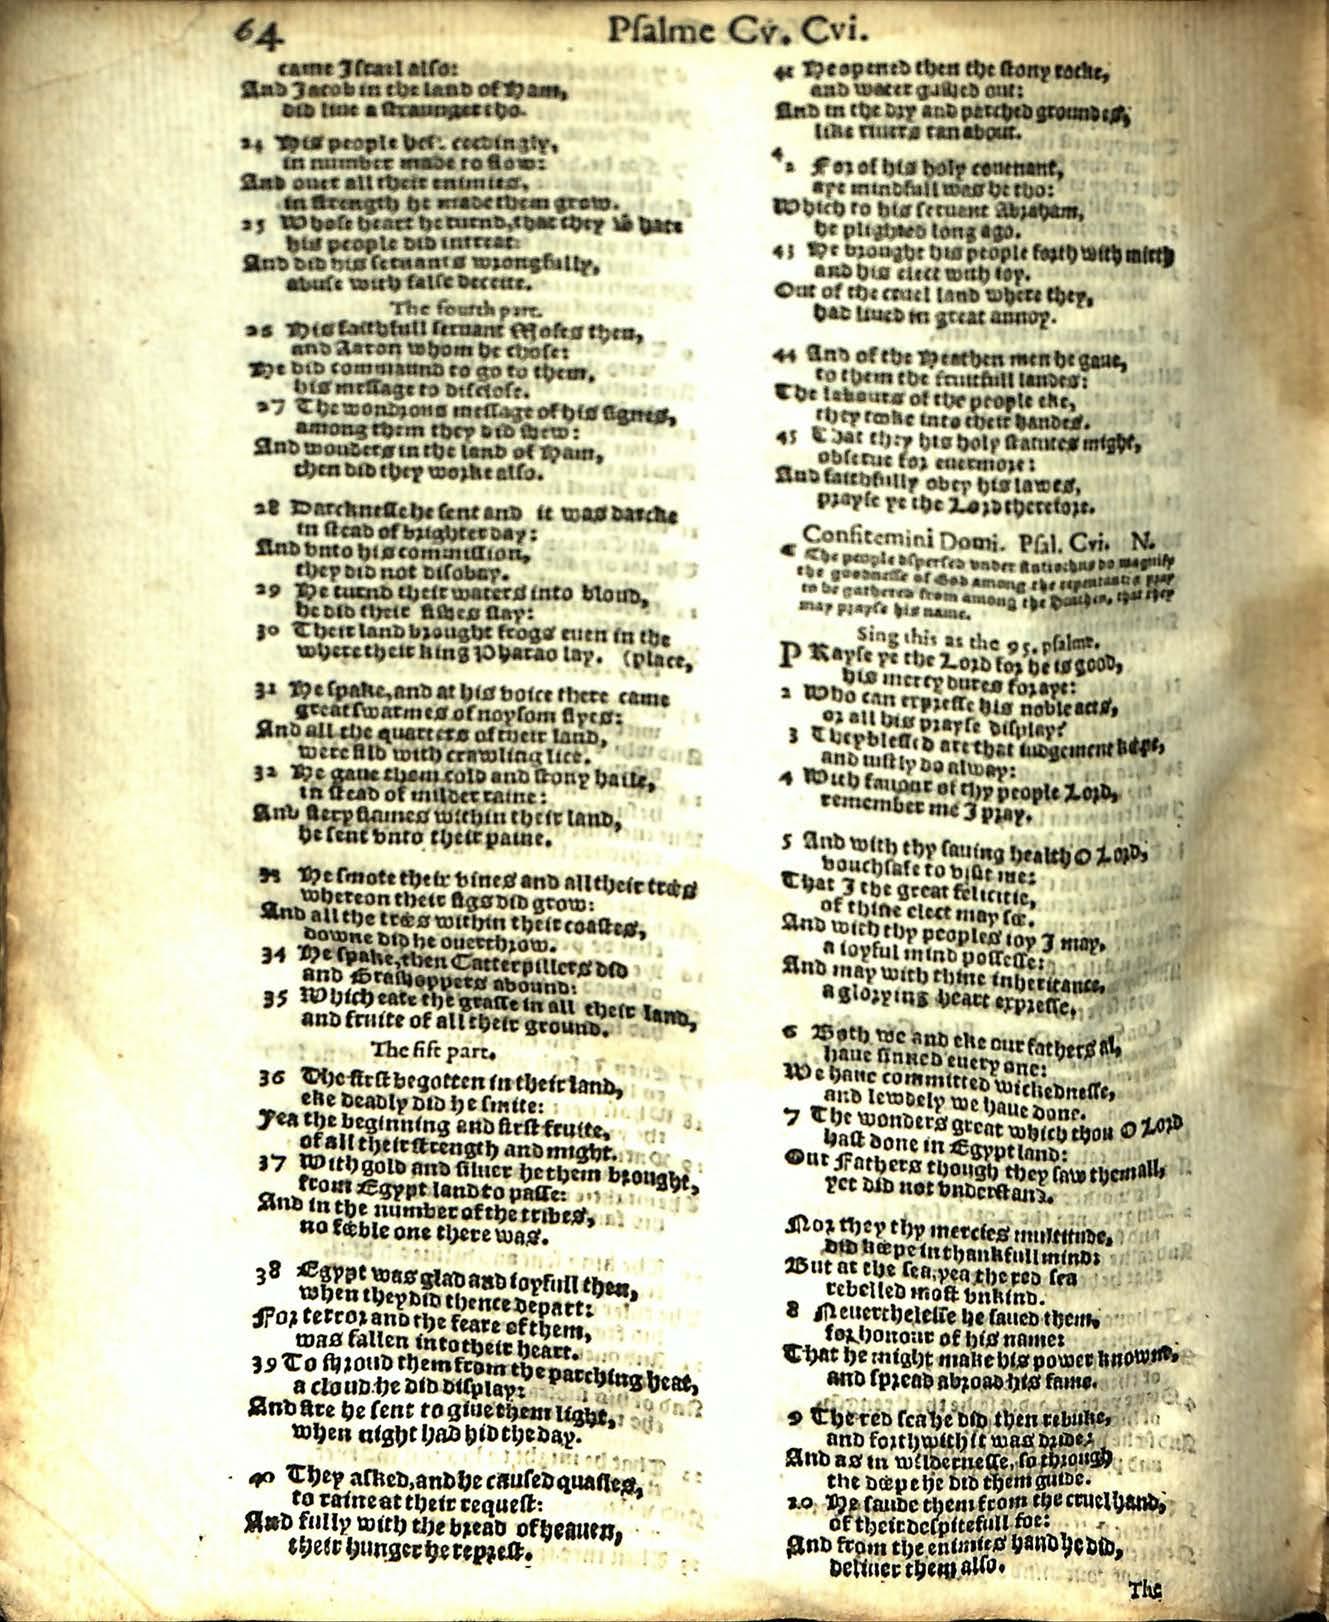 64
Pſalme Cv. Cvi.
came Iſrael alſo:
And Jacob in the land of Ham,
did liue a ſtraunger tho.
24 His people
in number made to flow:
And ouer all their enimies,
in ſtrength he made them grow.
25 Whoſe heart he turnd, that they hate
his people did intreat:
And did his ſeruants wrongfully,
abuſe with falſe deceite.
The fourth part.
26 His faithfull ſeruant Moſes then,
and Aaron whom he choſe:
He did commaund to go to them,
his meſſage to diſcloſe.
27 The wondrous meſſage of his ſignes,
among them they did ſhew:
And wonders in the land of Ham,
then did they worke alſo.
28 Darckneſſe he ſent and it was darcke
in ſtead of brighter day:
And vnto his commiſſion,
they did not diſobay.
29 He turnd their waters into bloud,
he did their fiſhes ſlay:
30 Their land brought frogs euen in the
where their king Pharao lay. (place,
31 He ſpake, and at his voice there came
great ſwarmes of noyſom flyes:
And all the quarters of their land,
were fild with crawling lice.
32 He gaue them cold and ſtony haile,
in ſtead of milder raine:
And fiery flames within their land,
he ſent vnto their paine.
33 He ſmote their vines and all their trées
whereon their figs did grow:
And all the trées within their coaſtes,
downe did he ouerthrow.
34 He ſpake, then Catterpillers did
and Graſhoppers abound:
35 Which eate the graſſe in all their land,
and fruite of all their ground.
The fift part.
36 The firſt begotten in their land,
eke deadly did he ſmite:
Yea the beginning and firſt fruite,
of all their ſtrength and might.
37 With gold and ſiluer he them brought,
from Egypt land to paſſe:
And in the number of the tribes,
no féeble one there was.
38 Egypt was glad and ioyfull then,
when they did thence depart:
For terror and the feare of them,
was fallen into their heart.
39 To ſhroud them from the parching heat,
a cloud he did diſplay:
And fire he ſent to giue them light,
when night had hid the day.
40 They aſked, and he cauſed quailes,
to raine at their requeſt:
And fully with the bread of heauen,
their hunger he repreſt.
41 He opened then the ſtony rocke,
and water guſhed out:
And in the dry and parched groundes,
like riuers ran about.
42 For of his holy couenant,
aye mindfull was he tho:
Which to his ſeruant Abraham,
he plighted long ago.
43 He brought his people forth with mirth
and his elect with ioy.
Out of the cruel land where they,
had liued in great annoy.
44 And of the Heathen men he gaue,
to them the fruitfull landes:
The labours of the people eke,
they tooke into their handes.
45 That they his holy ſtatutes might,
obſerue for euermore:
And faithfully obey his lawes,
prayſe ye the Lord therefore.
Confitemini Domi. Pſal. Cvi. N.
¶ The people diſperſed vnder Antiochus do magnify
the goodneſſe of God among the repentant: pray
to be gathered from among the Heathen, that they
may prayſe his name.
Sing this as the 95. pſalme.
PRayſe ye the Lord for he is good,
his mercy dures for aye:
2 Who can expreſſe his noble acts,
or all his prayſe diſplay?
3 They bleſſed are that iudgement kéepe,
and iuſtly do alway:
4 With fauour of thy people Lord,
remember me I pray.
5 And with thy ſauing health O Lord,
vouchſafe to viſit me:
That I the great felicitie,
of thine elect may ſée.
And with thy peoples ioy I may,
a ioyful mind poſſeſſe:
And may with thine inheritance,
a glorying heart expreſſe.
6 Both we and eke our fathers al,
haue ſinned euery one:
We haue committed wickedneſſe,
and lewdely we haue done.
7 The wonders great which thou O Lord
haſt done in Egypt land:
Our Fathers though they ſaw them all,
yet did not vnderſtand.
Nor they thy mercies multitude,
did kéepe in thankfull mind:
But at the ſea, yea the red ſea
rebelled moſt vnkind.
8 Neuertheleſſe he ſaued them,
for honour of his name:
That he might make his power knowne,
and ſpread abroad his fame.
9 The red ſea he did then rebuke,
and forthwith it was dride:
And as in wilderneſſe, ſo through
the déepe he did them guide.
10 He ſaude them from the cruel hand,
of their deſpitefull foe:
And from the enimies hand he did,
deliuer them alſo.
The